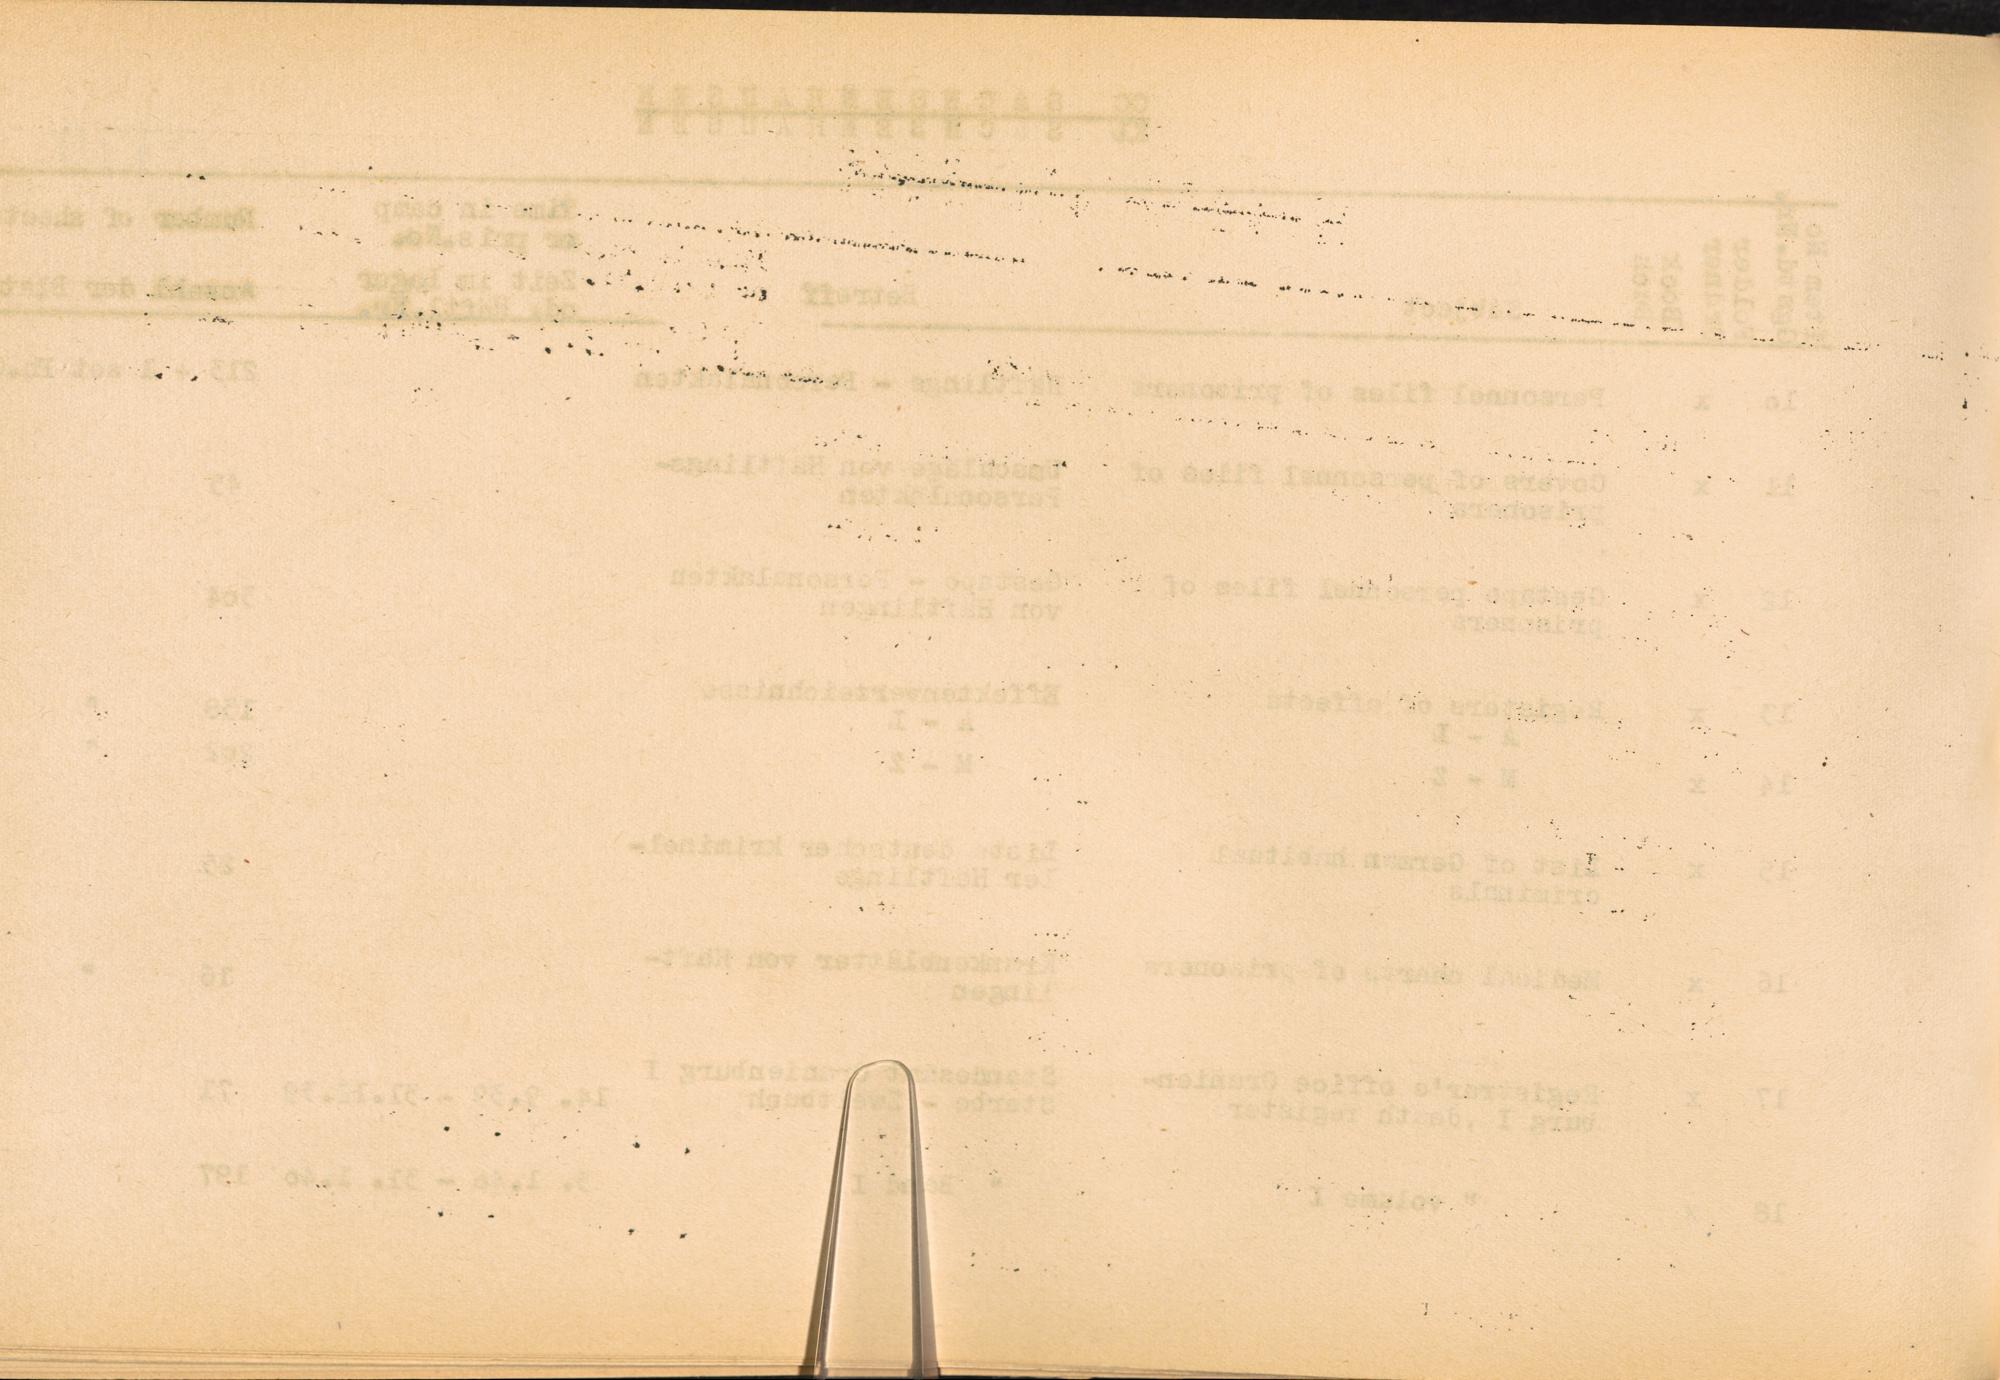 CC SACHSENHAUSEN
Subject
Betreff
Time in camp
or pris.No.
Zeit im Lager
od. Häftl.Nr.
Number of sheets
Anzahl der Blatt
Book
Folder
10 x Personnel files of prisoners Häftlings - Personalakten 213 + 1 set Ph.C
11 x Covers of personnel files of
prisoners
Umschläge von Häftlings-
Personalakten 45
12 x Gestapo personnel files of
prisoners
Gestapo - Personalakten
von Häftlingen 304
13 x Registers of effects
A - L
Effektenverzeichnisse
A - L 158 "
14 x M - Z M - Z 302 "
15 x List of German habitual
criminals
Liste deutscher kriminel-
ler Häftlinge 25
16 x Medical charts of prisoners Krankenblätter von Häft-
lingen 16 "
17 x Registrar's office Oranien-
burg I, death register
Standesamt Oranienburg I
Sterbe - Zweitbuch 14. 9.39 - 31.12.39 71
18 x " volume I " Band I 3. 1.40 - 31. 1.40 197